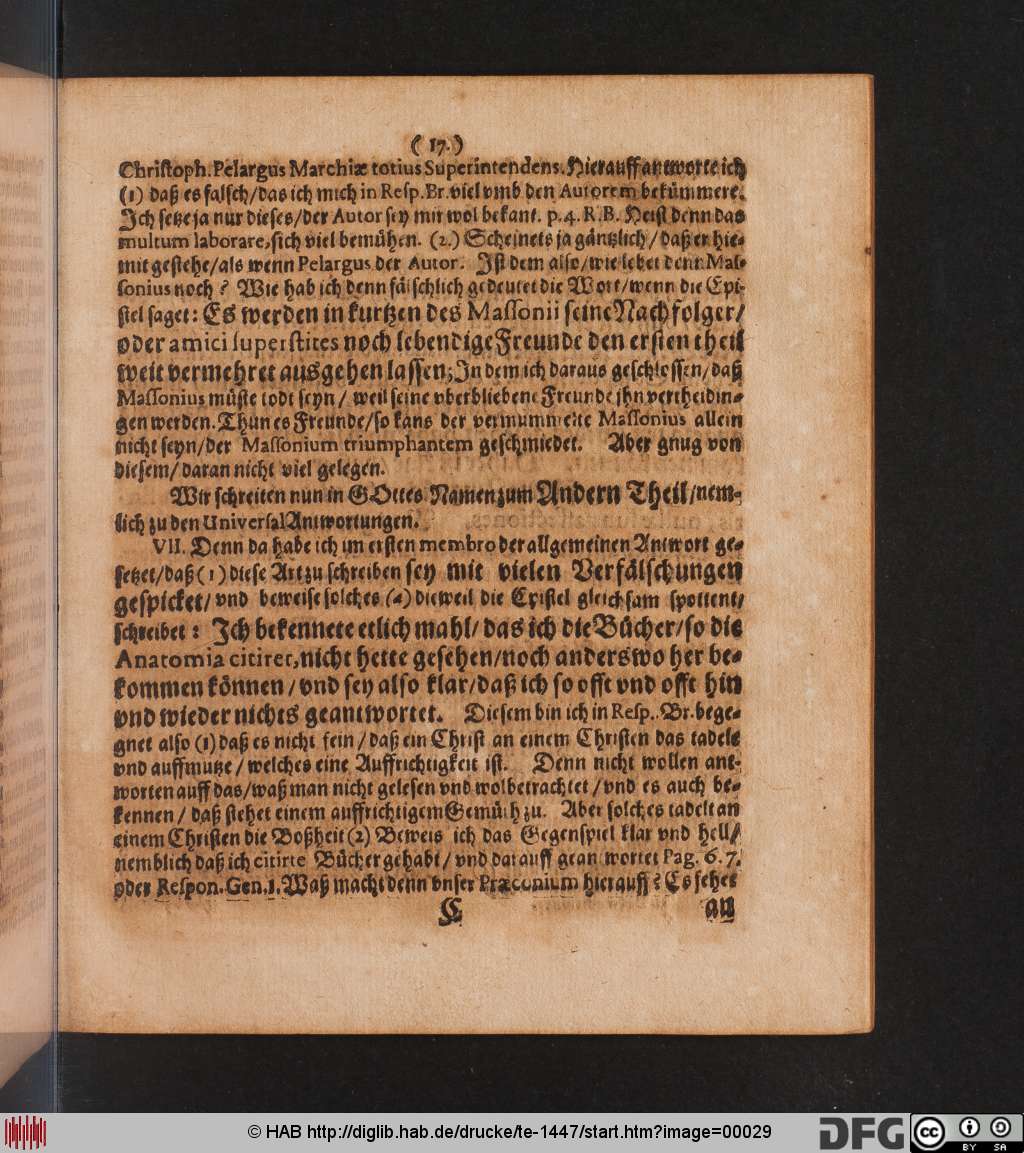 ( 17. )
Christoph. Pelargus Marchiæ totius Superintendens. Hierauff antworte ich
(1) daß es falsch/das ich mich in Resp. Br. viel vmb den Autorem bekümmere.
Ich setze ja nur dieses/der Autor sey mir wol bekant. p. 4. R. B. Heist denn das
multum laborare, sich viel bemühen. (2.) Scheinets ja gäntzlich/ daß er hie-
mit gestehe/als wenn Pelargus der Autor. Ist dem also/wie lebet denn Mas-
sonius noch? Wie hab ich denn fälschlich gedeutet die Wort/wenn die Epi-
stel saget: Es werden in kurtzen des Massonii seine Nachfolger/
oder amici superstites noch lebendige Freunde den ersten theil
weit vermehret ausgehen lassen; In dem ich daraus geschlossen/daß
Massonius müste todt seyn/ weil seine vberbliebene Freunde jhn vertheidin-
gen werden. Thun es Freunde/so kans der vermummete Massonius allein
nicht seyn/der Massonium triumphantem geschmiedet. Aber gnug von
diesem/daran nicht viel gelegen.
Wir schreiten nun in GOttes Namen zum Andern Theil/nem-
lich zu den Universal Antwortungen.
VII. Denn da habe ich im ersten membro der allgemeinen Antwort ge-
setzet/daß (1) diese Art zu schreiben sey mit vielen Verfälschungen
gespicket/ vnd beweise solches (a) dieweil die Epistel gleichsam spottent/
schreibet: Ich bekennete etlich mahl/das ich die Bücher/so die
Anatomia citiret, nicht hette gesehen/noch anderswo her be-
kommen können/vnd sey also klar/daß ich so offt vnd offt hin
vnd wieder nichts geantwortet. Diesem bin ich in Resp. Br. bege-
gnet also (1) daß es nicht fein/daß ein Christ an einem Christen das tadele
vnd auffmutze/welches eine Auffrichtigkeit ist. Denn nicht wollen ant-
worten auff das/waß man nicht gelesen vnd wolbetrachtet/vnd es auch be-
kennen/ daß stehet einem auffrichtigem Gemüth zu. Aber solches tadelt an
einem Christen die Boßheit (2) Beweis ich das Gegenspiel klar vnd hell/
nemblich daß ich citirte Bücher gehabt/ vnd darauff geantwortet Pag. 6. 7.
oder Respon. Gen. 1. Waß macht denn vnser Præconium hierauff? Es sehet
C an
© HAB http://diglib.hab.de/drucke/te-1447/start.htm?image=00029
DFG
cc BY SA